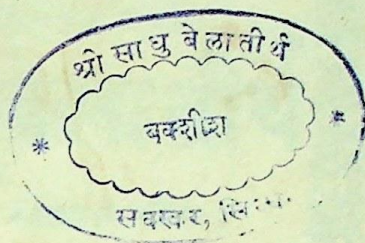 श्री साधु बेला तीर्थ
बक्शीश
सक्खर,